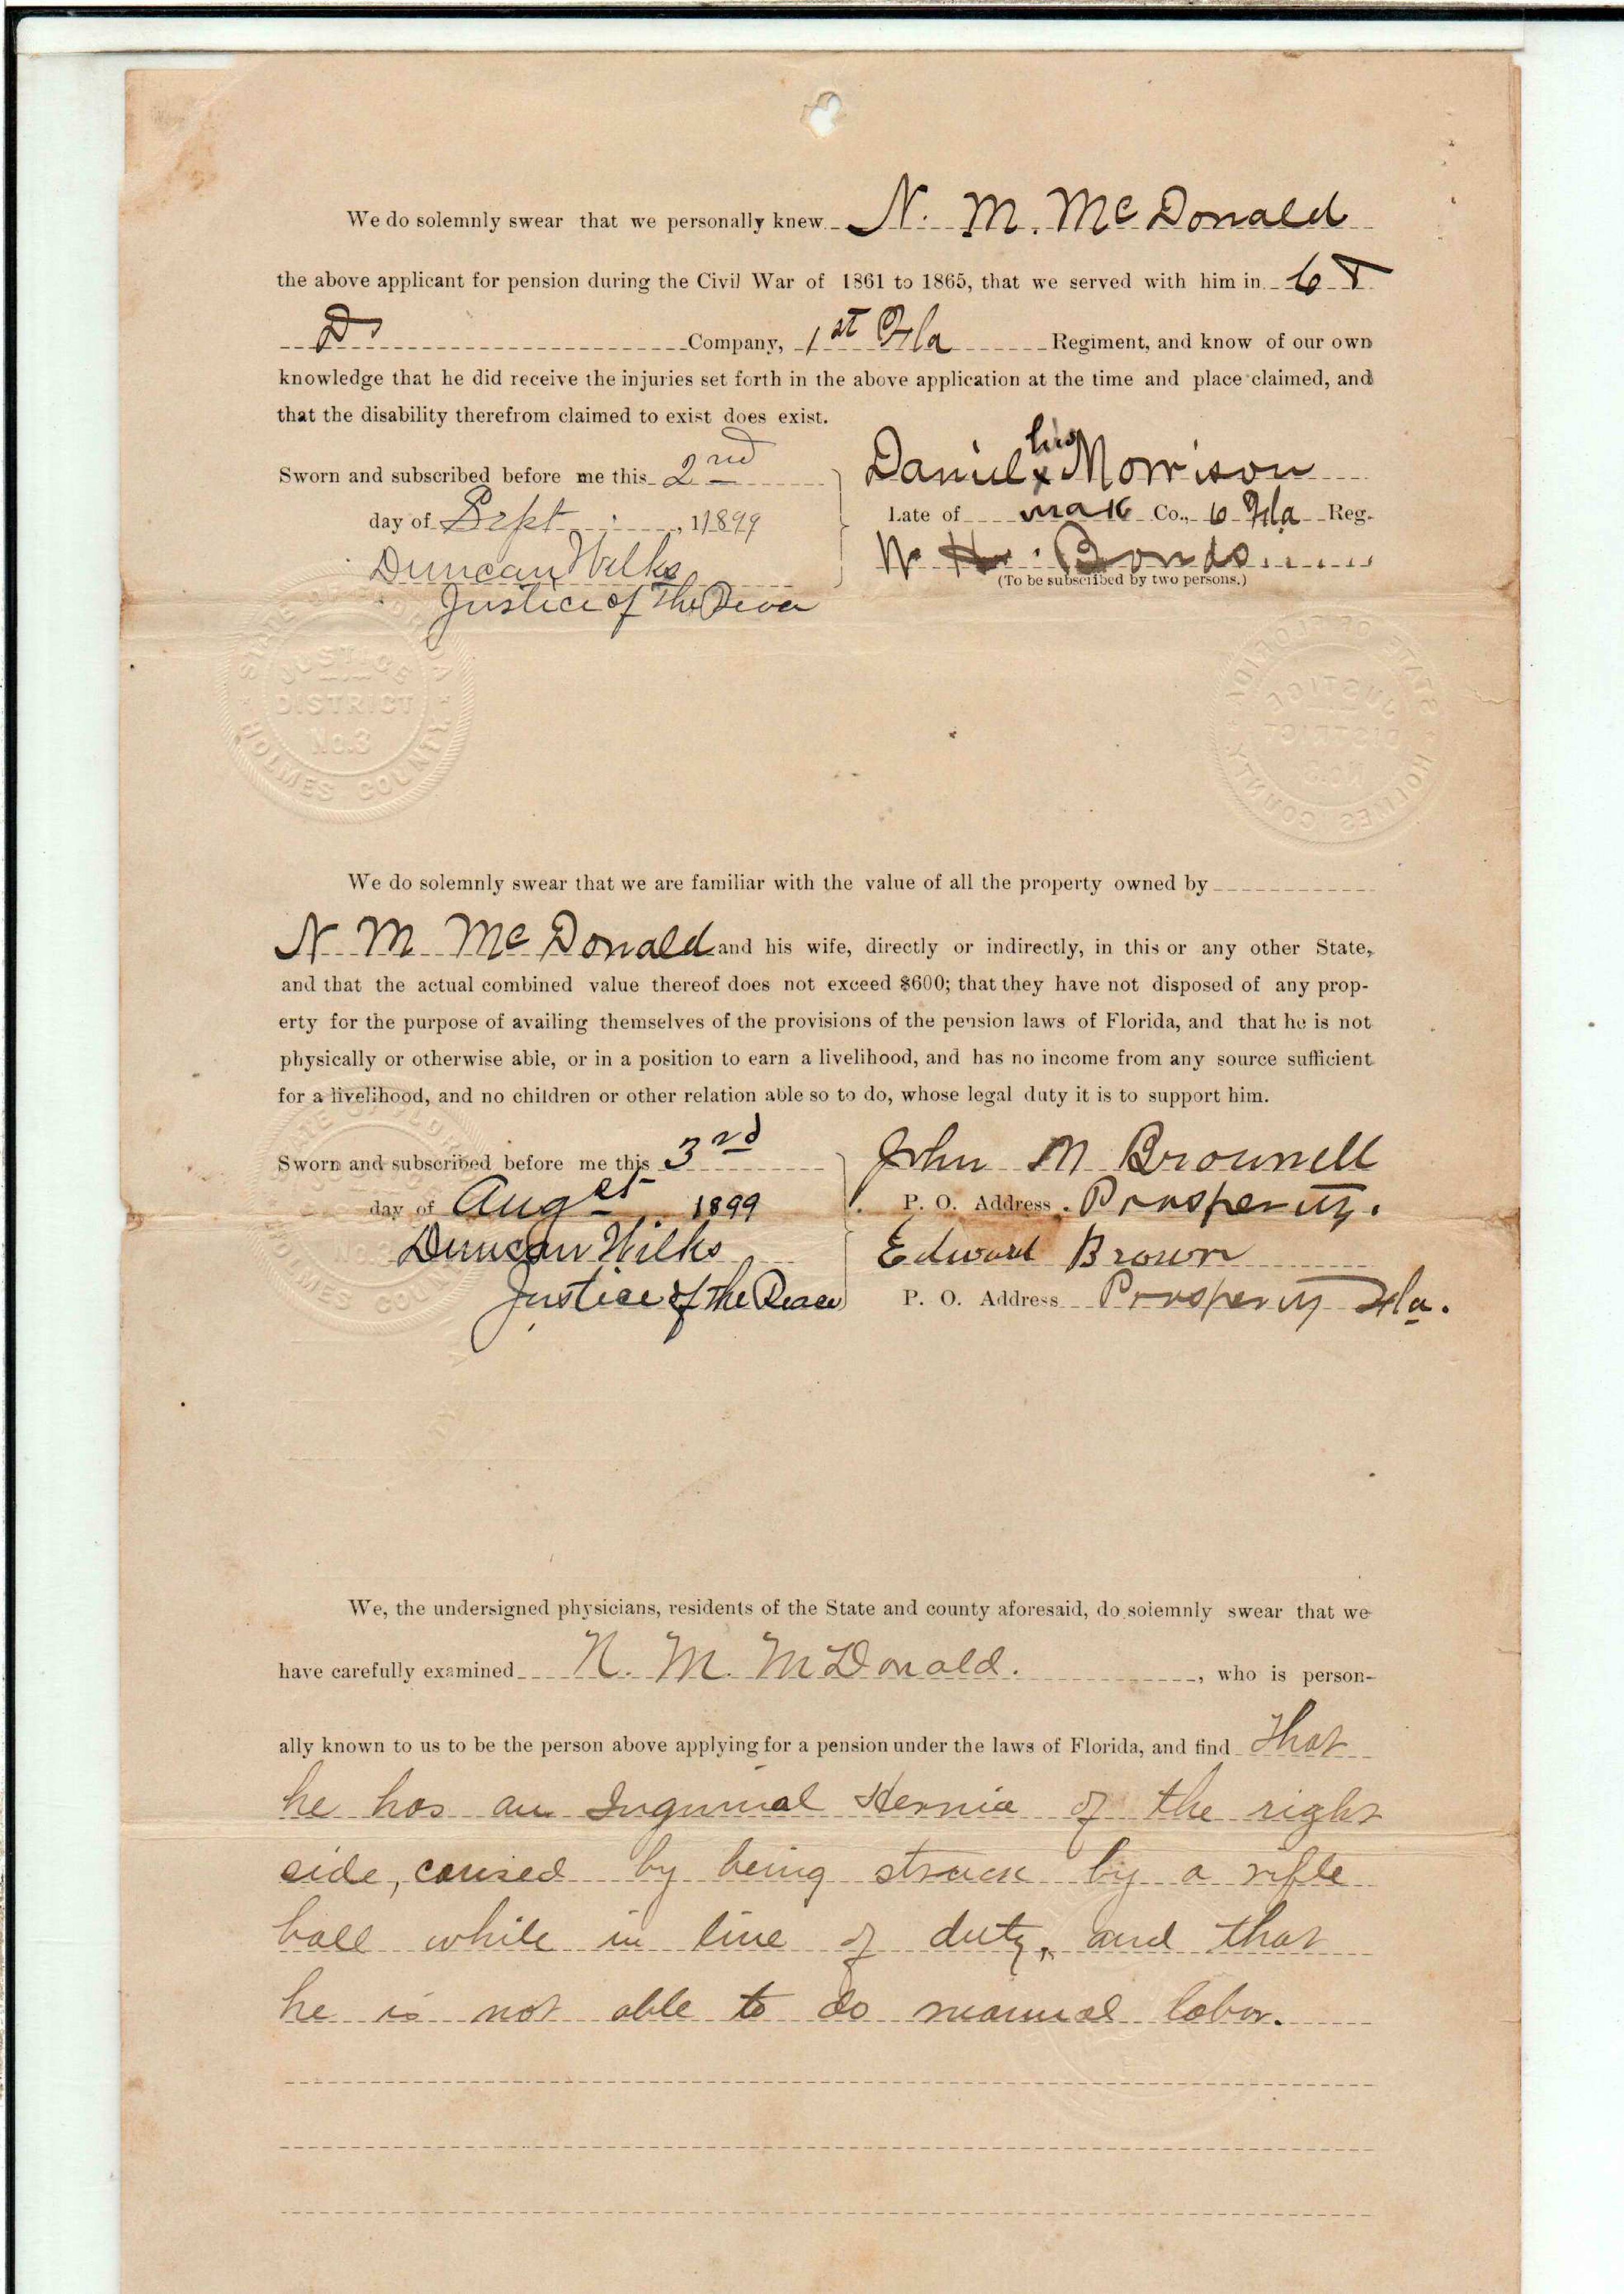 We do solemnly swear that we personally knew N. M. McDonald
the above applicant for pension during the Civil War of 1861 to 1865, that we served with him in
D Company, 1st Fla Regiment, and know of our own
knowledge that he did receive the injuries set forth in the above application at the time and place claimed, and
that the disability therefrom claimed to exist does exist.
his
Sworn and subscribed before me this 2nd Daniel x Morrison
day of Sept, 1899 Late of mark Co., 6 Fla Reg.
Duncan Wilks W H Bonds
(To be subscribed by two persons.)
Justice of the Peace
STATE OF FLORIDA
JUSTICE
DISTRICT
No. 3
HOLMES COUNTY
STATE OF FLORIDA
JUSTICE
DISTRICT
No. 3
HOLMES COUNTY
We do solemnly swear that we are familiar with the value of all the property owned by
N M McDonald and his wife, directly or indirectly, in this or any other State,
and that the actual combined value thereof does not exceed $600; that they have not disposed of any prop-
erty for the purpose of availing themselves of the provisions of the pension laws of Florida, and that he is not
physically or otherwise able, or in a position to earn a livelihood, and has no income from any source sufficient
for a livelihood, and no children or other relation able so to do, whose legal duty it is to support him.
Sworn and subscribed before me this 3rd John M Brownell
day of Augest 1899 P. O. Address Prosperity.
Duncan Wilks Edward Brown
Justice of the Peace P. O. Address Prosperity Fla.
We, the undersigned physicians, residents of the State and county aforesaid, do solemnly swear that we
have carefully examined N. M. McDonald., who is person-
ally known to us to be the person above applying for a pension under the laws of Florida, and find that
he has an Inguinal Hernia of the right
side, caused by being struck by a rifle
ball while in line of duty, and that
he is not able to do manual labor.